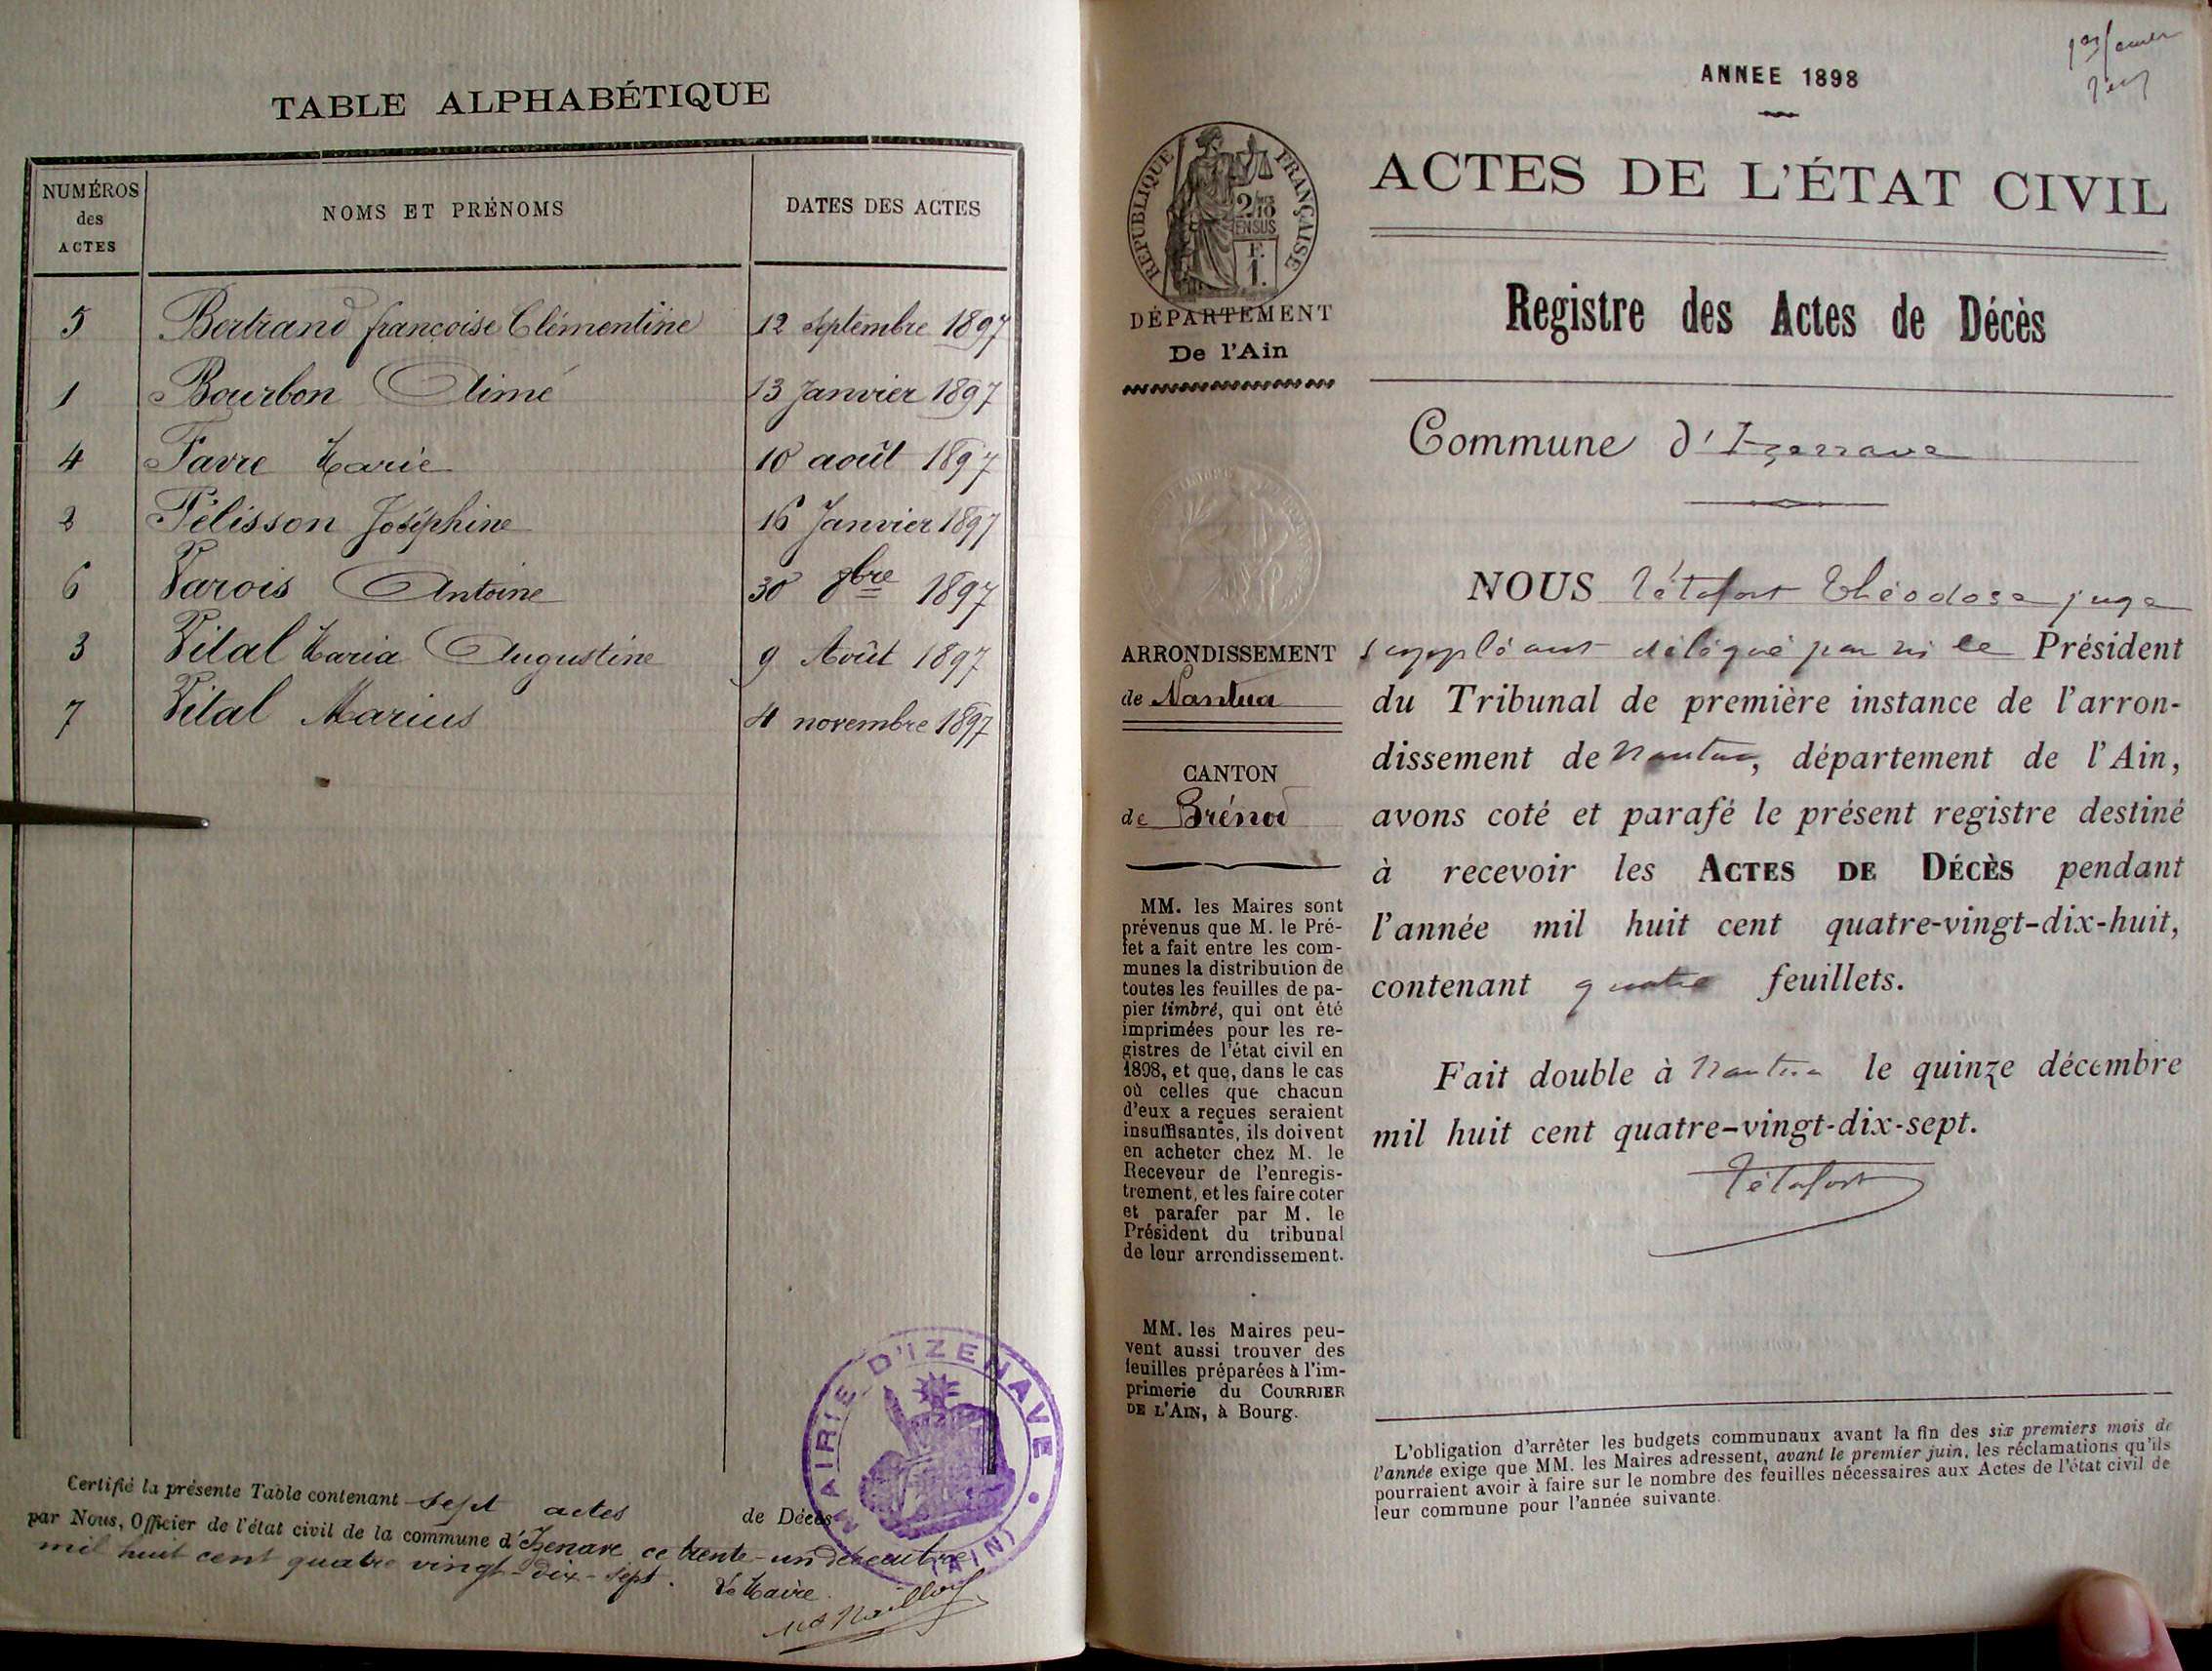 TABLE ALPHABÉTIQUE
NUMÉROS des ACTES
NOMS ET PRÉNOMS
DATES DES ACTES
5 Bertrand françoise Clémentine 12 Septembre 1897
1 Bourbon Aimé 13 Janvier 1897
4 Favre Marie 10 août 1897
2 Pélisson Joséphine 16 Janvier 1897
6 Varois Antoine 30 8bre 1897
3 Vital Maria Augustine 9 Août 1897
7 Vital Marius 4 novembre 1897
Certifié la présente Table contenant sept actes de Décès
par Nous, Officier de l'état civil de la commune d'Izenave ce trente-un décembre
mil huit cent quatre vingt-dix-sept.
Le Maire
MAIRIE D'IZENAVE
(AIN)
ANNEE 1898
ACTES DE L'ÉTAT CIVIL
Registre des Actes de Décès
REPUBLIQUE FRANÇAISE
2/10
EN SUS
F.
1.
DÉPARTEMENT
De l'Ain
Commune d'Izenave
ARRONDISSEMENT
de Nantua
CANTON
de Brénod
NOUS Tétafort Théodose juge
suppléant délégué par M le Président
du Tribunal de première instance de l'arron-
dissement de Nantua, département de l'Ain,
avons coté et parafé le présent registre destiné
à recevoir les ACTES DE DÉCÈS pendant
l'année mil huit cent quatre-vingt-dix-huit,
contenant quatre feuillets.
Fait double à Nantua le quinze décembre
mil huit cent quatre-vingt-dix-sept.
Tétafort
MM. les Maires sont
prévenus que M. le Pré-
fet a fait entre les com-
munes la distribution de
toutes les feuilles de pa-
pier timbré, qui ont été
imprimées pour les re-
gistres de l'état civil en
1898, et que, dans le cas
où celles que chacun
d'eux a reçues seraient
insuffisantes, ils doivent
en acheter chez M. le
Receveur de l'enregis-
trement, et les faire coter
et parafer par M. le
Président du tribunal
de leur arrondissement.
MM. les Maires peu-
vent aussi trouver des
feuilles préparées à l'im-
primerie du COURRIER
DE L'AIN, à Bourg.
L'obligation d'arrêter les budgets communaux avant la fin des six premiers mois de
l'année exige que MM. les Maires adressent, avant le premier juin, les réclamations qu'ils
pourraient avoir à faire sur le nombre des feuilles nécessaires aux Actes de l'état civil de
leur commune pour l'année suivante.